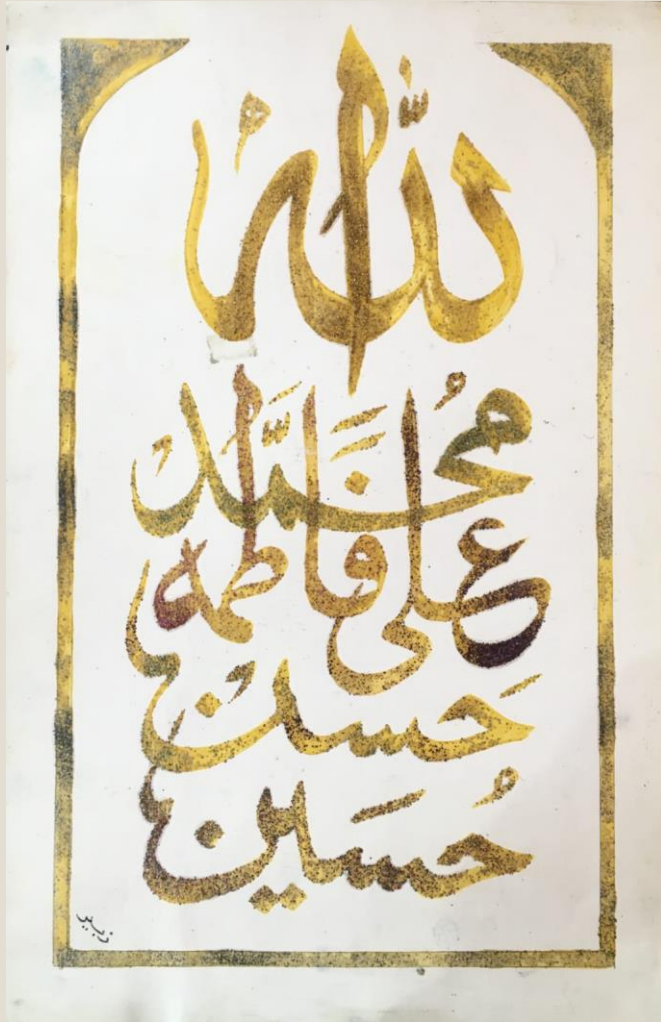 الله
محمد
علی فاطمه
حسن
حسین